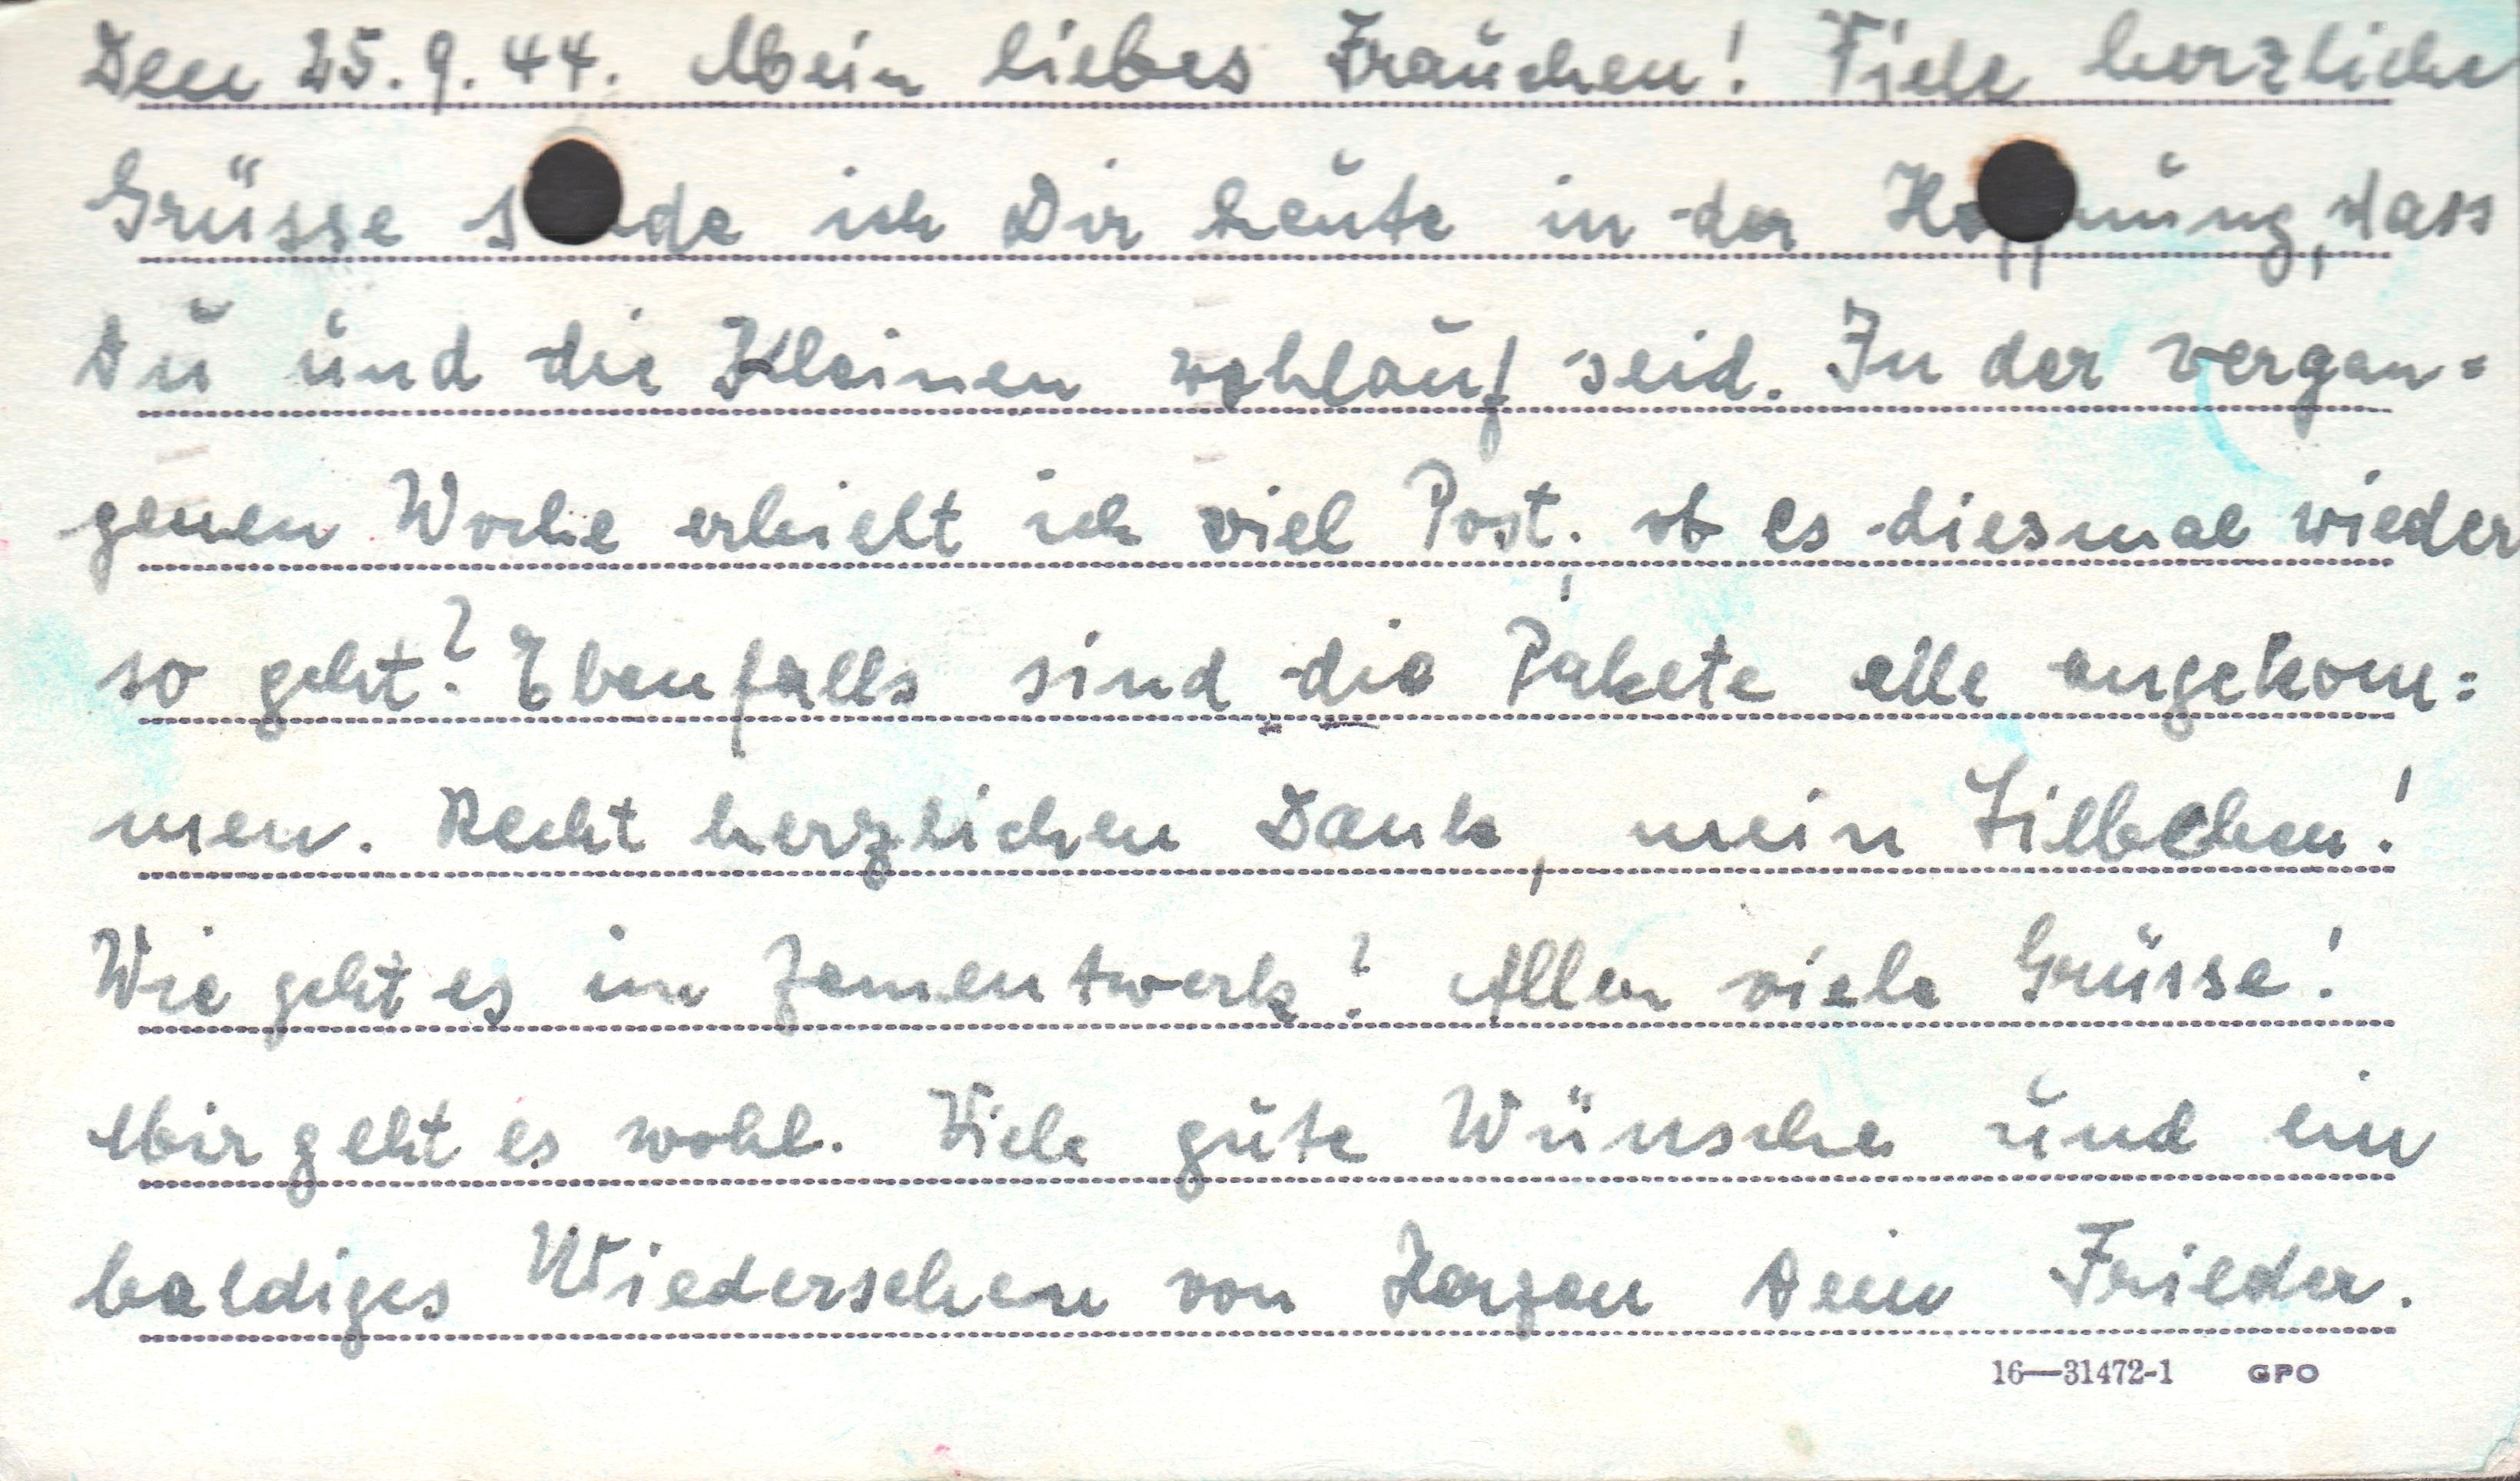 Den 25.9.44. Mein liebes Frauchen! Viele herzliche
Grüsse sende ich Dir heute in der Hoffnung, dass
Du und die Kleinen wohlauf seid. In der vergan=
genen Woche erhielt ich viel Post; ob es diesmal wieder
so geht? Ebenfalls sind die Pakete alle angekom=
men. Recht herzlichen Dank, mein Liebchen!
Wie geht es im Zementwerk? Allen viele Grüsse!
Mir geht es wohl. Viele gute Wünsche und ein
baldiges Wiedersehen von Herzen Dein Frieder.
16—31472-1 GPO